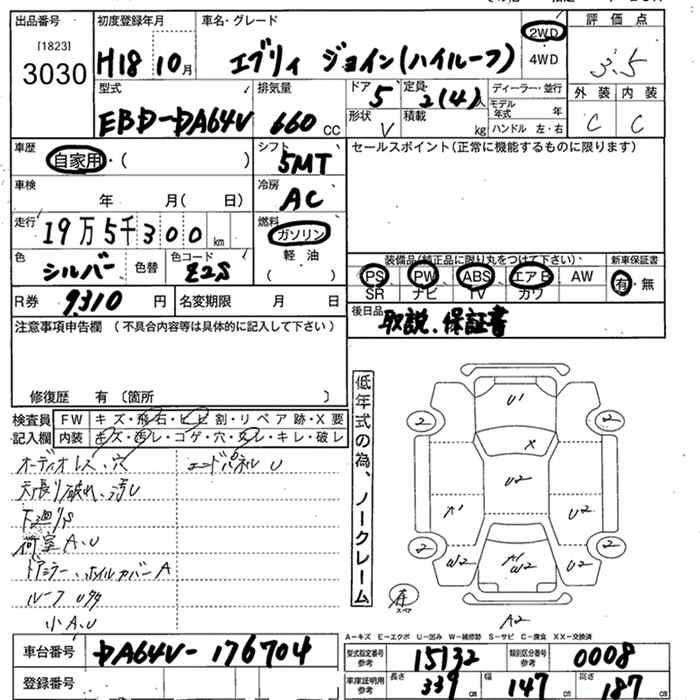 出品番号
[1823]
3030
初度登録年月
H18 10月
車名・グレード
エブリィ ジョイン(ハイルーフ)
2WD
4WD
評価点
3.5
外装 内装
C C
型式
EBD-DA64V
排気量
660 CC
ドア 5
形状 V
定員 2(4)人
積載 kg
ディーラー・並行
モデル年式 年
ハンドル 左・右
車歴
自家用・( )
シフト
5MT
車検
年 月( 日)
冷房
AC
走行
19万5千300km
燃料
ガソリン
軽油
( )
色
シルバー
色替
色コード
Z2S
R券 9310円
名変期限 月 日
セールスポイント(正常に機能するものに限ります)
装備品(純正品に限り丸をつけて下さい)
新車保証書
PS PW ABS エアB AW
有・無
SR ナビ TV カワ
後日品
取説、保証書
注意事項申告欄 (不具合内容等は具体的に記入して下さい)
修復歴 有 〔箇所 〕
検査員記入欄
FW キズ・飛石・ヒビ割・リペア跡・X要
内装 キズ・汚レ・コゲ・穴・スレ・キレ・破レ
オーディオレス、穴
天張り破れ、汚レ
下廻りS
荷室A、U
ドアミラー、ホイルカバーA
ルーフ
小A、U
エンドパネル U
低年式の為、ノークレーム
U1
X
U2
A1
U2
W2
W2
U2
2
2
2
2
有
スペア
A2
A-キズ E-エクボ U-凹み W-補修跡 S-サビ C-腐食 XX-交換済
車台番号
DA64V-176704
登録番号
型式指定番号 参考
15132
類別区分番号 参考
0008
車庫証明用 参考
長さ 339cm
幅 147cm
高さ 187cm